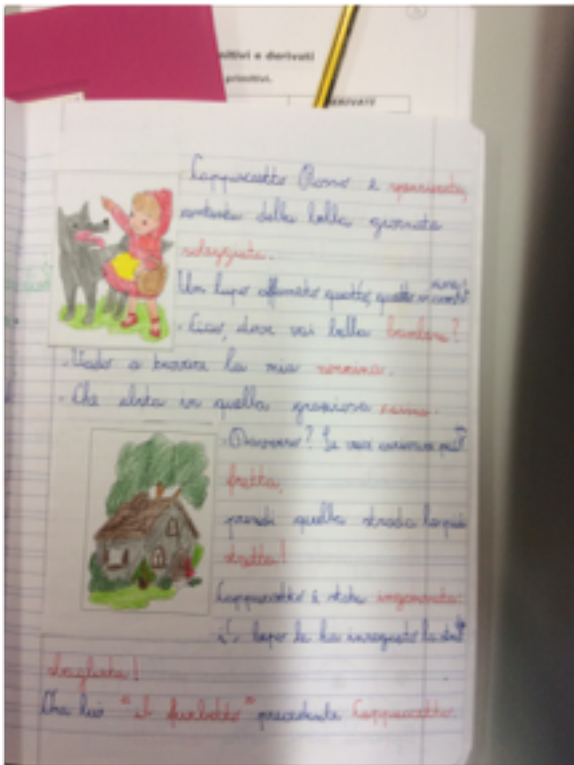 primitivi e derivati
primitivi.
DERIVATI
Cappuccetto Rosso è spensierata,
contenta della bella giornata
soleggiata.
Un lupo affamato quatto, quatto
- Ciao, dove vai bella bambina?
- Vado a trovare la mia nonnina.
- Che abita in quella graziosa casina.
- Davvero? Se vuoi arrivare più
fretta,
prendi quella strada là più
stretta!
Cappuccetto è stata ingannata:
il lupo le ha insegnato la
sbagliata!
Ora lui "il furbetto" precede Cappuccetto.